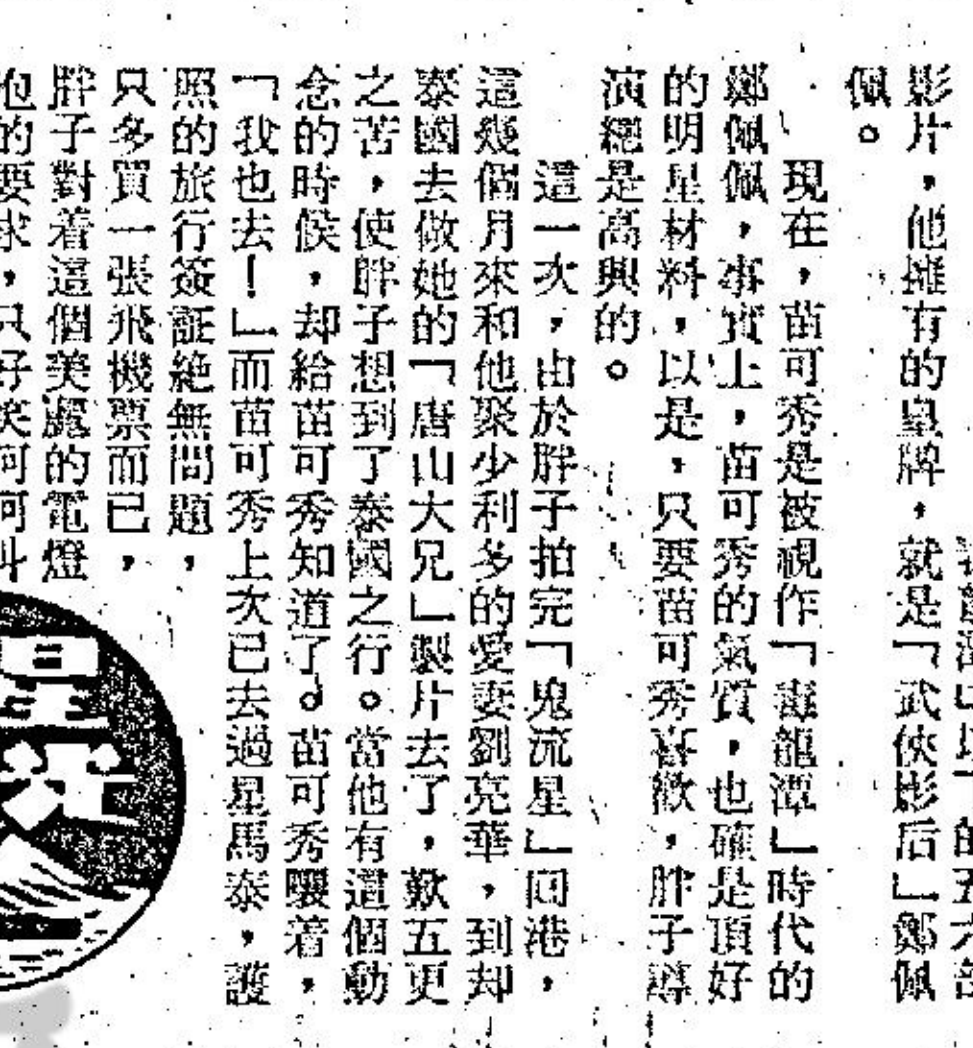 影片，他擁有的皇牌，就是「武俠影后」鄭佩
佩。
現在，苗可秀是被視作「毒龍潭」時代的
鄭佩佩，事實上，苗可秀的氣質，也確是頂好
的明星材料，以是，只要苗可秀喜歡，胖子導
演總是高興的。
這一次，由於胖子拍完「鬼流星」回港，
這幾個月來和他聚少利多的愛妻劉亮華，到却
泰國去做她的「唐山大兄」製片去了，歎五更
之苦，使胖子想到了泰國之行。當他有這個動
念的時候，却給苗可秀知道了。苗可秀嚷着，
「我也去！」而苗可秀上次已去過星馬泰，護
照的旅行簽証絶無問題，
只多買一張飛機票而已，
胖子對着這個美麗的電燈
的要求，只好笑呵呵